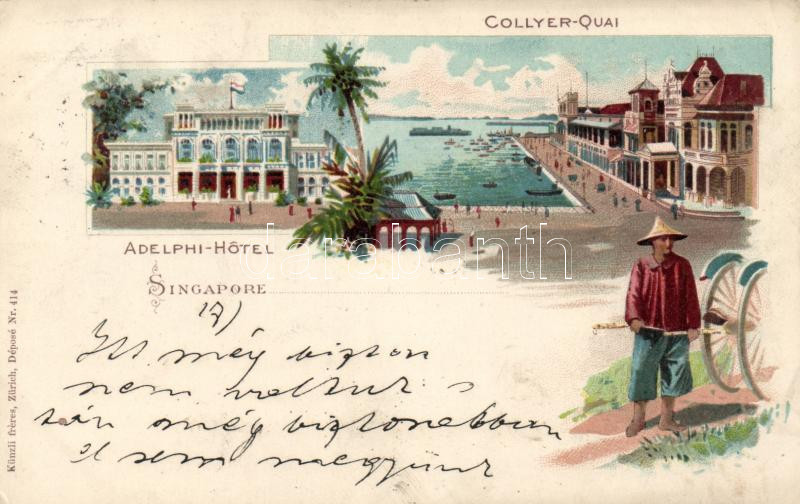 COLLYER-QUAI
ADELPHI-HÔTEL
SINGAPORE
17)
Itt még bizton
nem voltunk s
tán még biztonebban
el sem megyünk
Künzli frères, Zürich, Déposé Nr. 414
darabanth